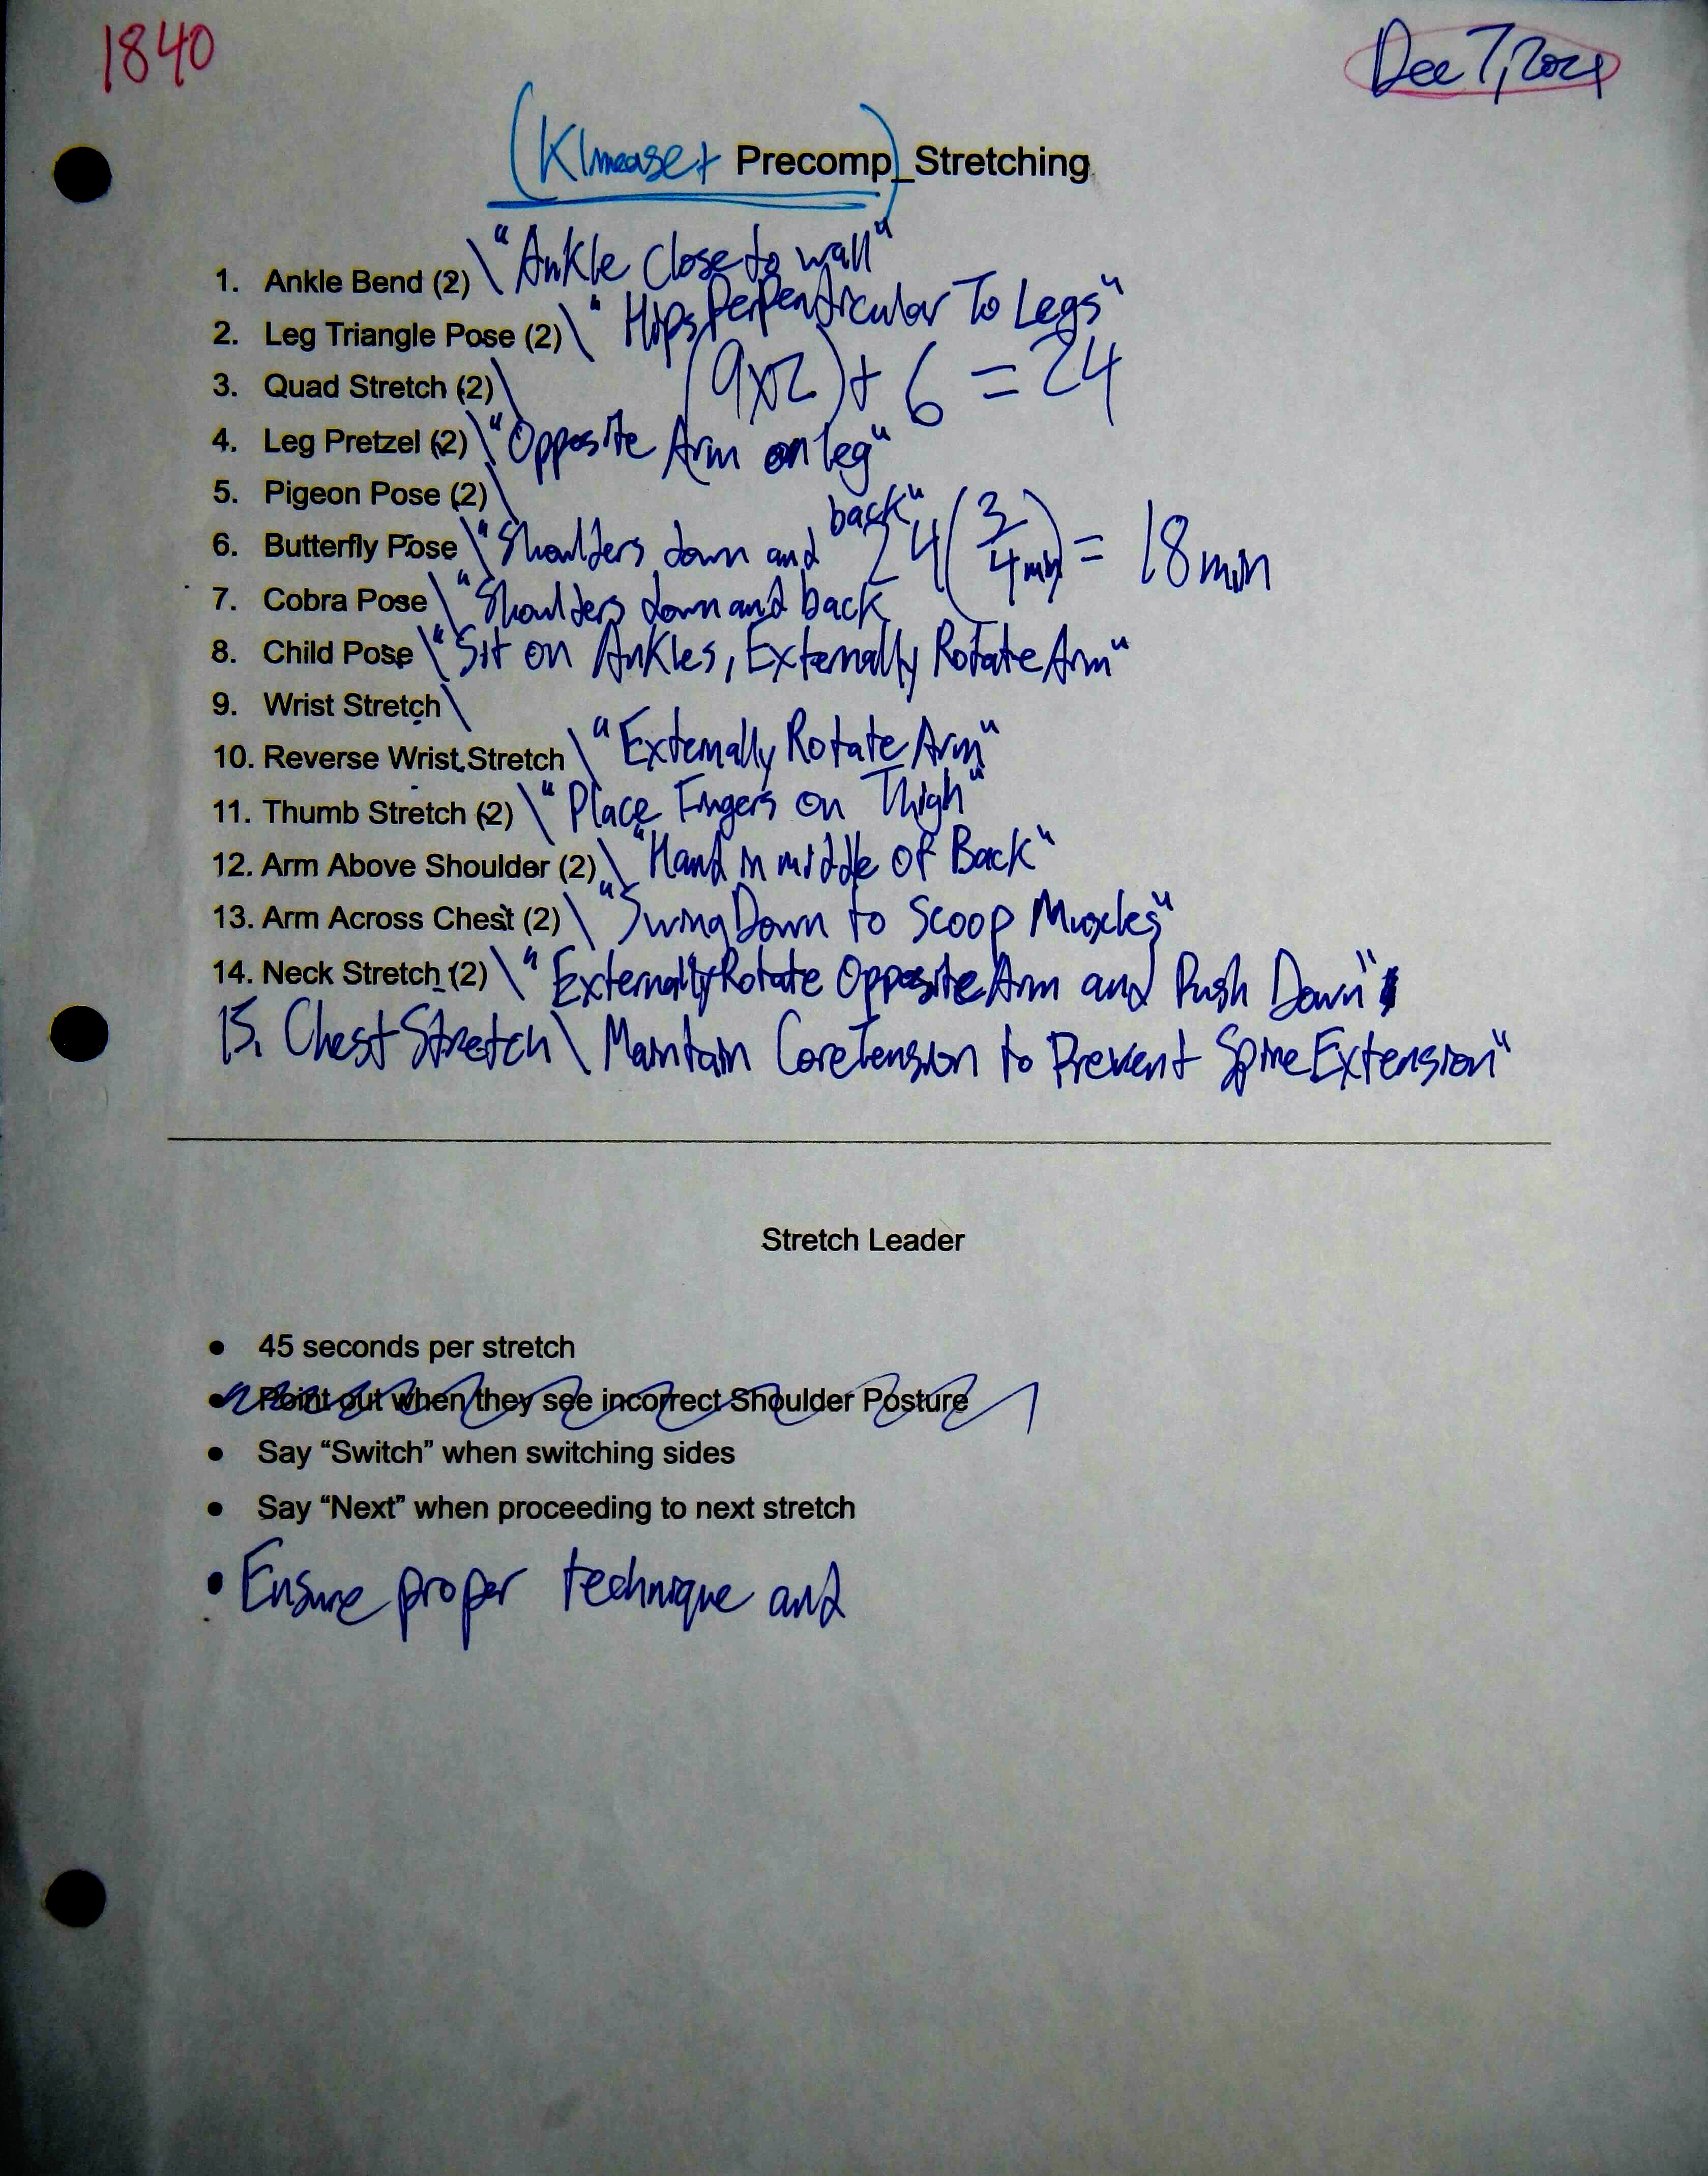 1840
Dec 7, 2024
(Kinease+ Precomp)_Stretching
1. Ankle Bend (2) \ "Ankle close to wall"
2. Leg Triangle Pose (2) \ "Hips Perpendicular To Legs"
3. Quad Stretch (2) \ (9x2) + 6 = 24
4. Leg Pretzel (2) \ "Opposite Arm on leg"
5. Pigeon Pose (2) \
6. Butterfly Pose \ "Shoulders down and back" 24(3/4 min) = 18 min
7. Cobra Pose \ "Shoulders down and back
8. Child Pose \ "Sit on Ankles, Externally Rotate Arm"
9. Wrist Stretch \
10. Reverse Wrist Stretch \ "Externally Rotate Arm"
11. Thumb Stretch (2) \ "Place Fingers on Thigh"
12. Arm Above Shoulder (2) \ "Hand in middle of Back"
13. Arm Across Chest (2) \ "Swing Down to Scoop Muscles"
14. Neck Stretch (2) \ "Externally Rotate Opposite Arm and Push Down"
15. Chest Stretch \ Maintain Core Tension to Prevent Spine Extension"
Stretch Leader
● 45 seconds per stretch
● Point out when they see incorrect Shoulder Posture
● Say “Switch” when switching sides
● Say “Next” when proceeding to next stretch
• Ensure proper technique and